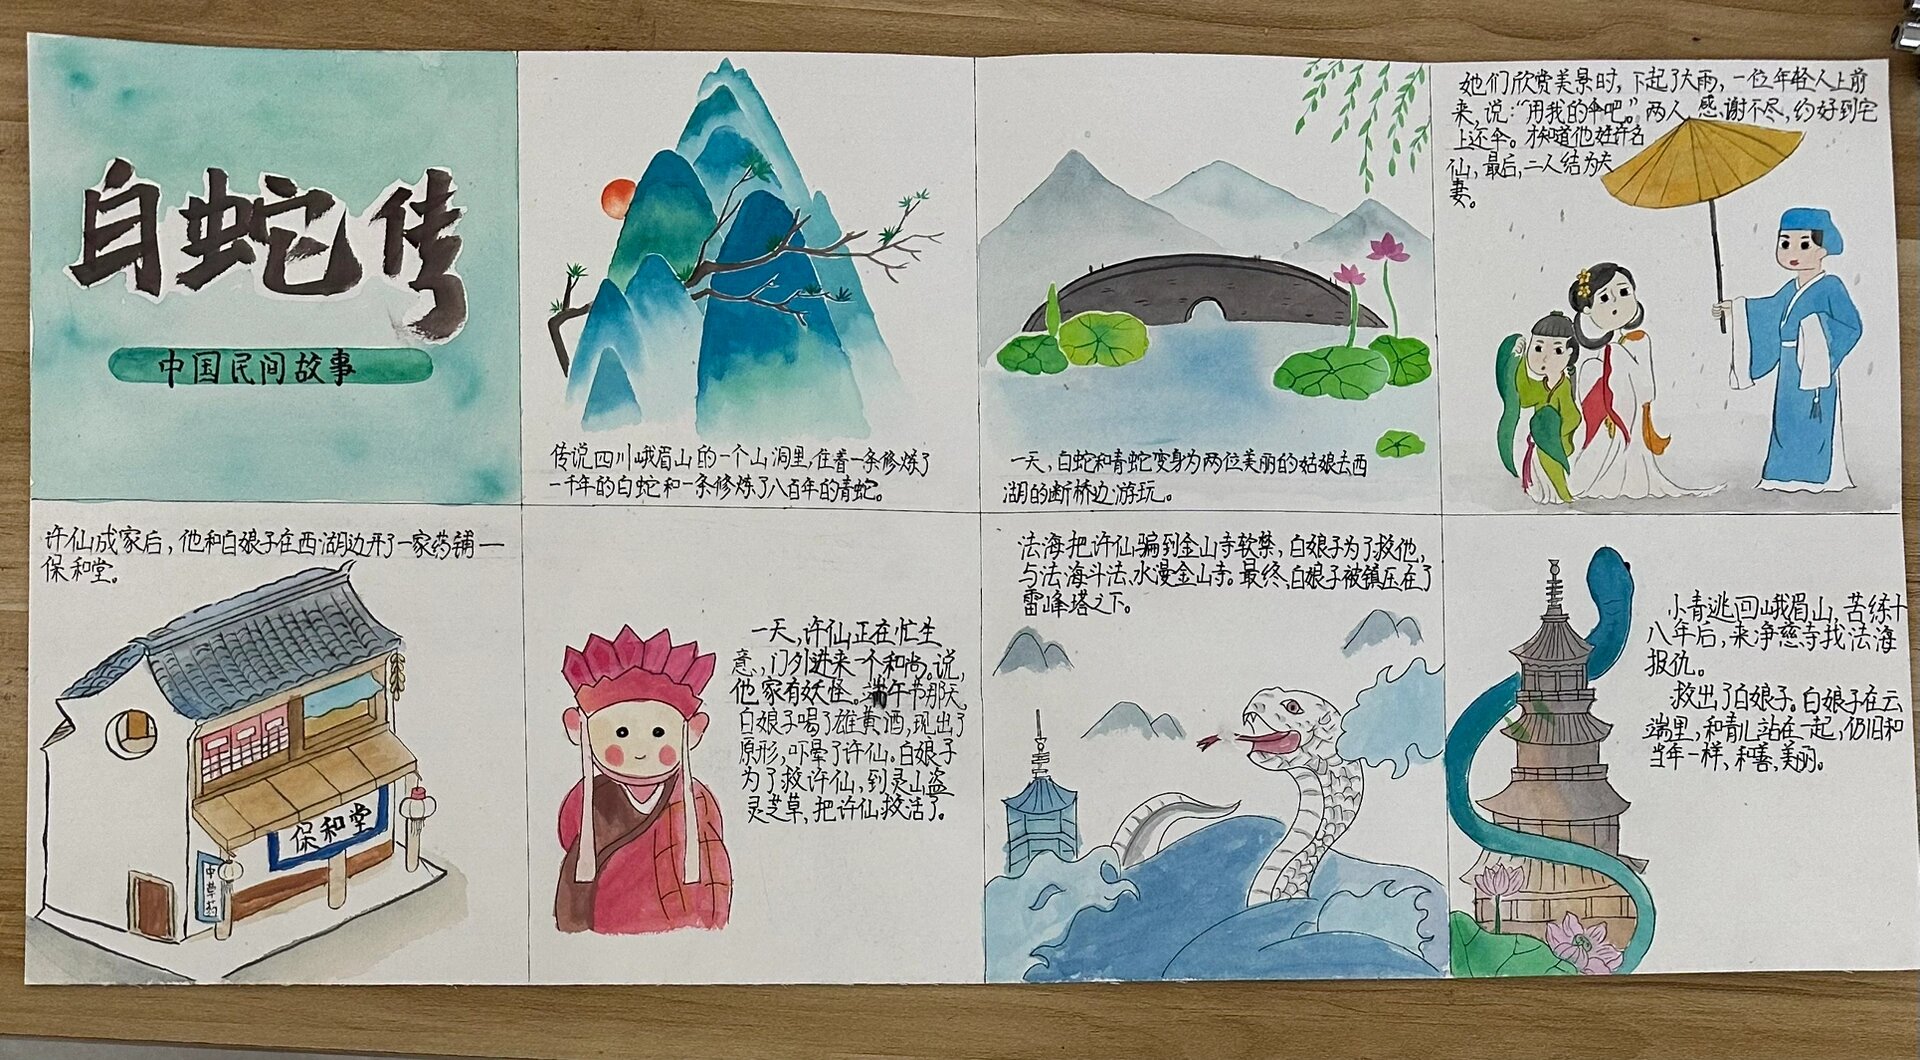 白蛇传
中国民间故事
传说四川峨眉山的一个山洞里,住着一条修炼了
一千年的白蛇和一条修炼了八百年的青蛇。
一天,白蛇和青蛇变身为两位美丽的姑娘去西
湖的断桥边游玩。
她们欣赏美景时,下起了大雨,一位年轻人上前
来,说:“用我的伞吧。”两人感谢不尽,约好到宅
上还伞。才知道他姓许名
仙,最后,二人结为夫
妻。
许仙成家后,他和白娘子在西湖边开了一家药铺—
保和堂。
保和堂
中草药
一天,许仙正在忙生
意,门外进来一个和尚。说,
他家有妖怪。端午节那天,
白娘子喝了雄黄酒,现出了
原形,吓晕了许仙。白娘子
为了救许仙,到灵山盗
灵芝草,把许仙救活了。
法海把许仙骗到金山寺软禁,白娘子为了救他,
与法海斗法、水漫金山寺。最终,白娘子被镇压在了
雷峰塔之下。
小青逃回峨眉山,苦练十
八年后,来净慈寺找法海
报仇。
救出了白娘子。白娘子在云
端里,和青儿站在一起,仍旧和
当年一样,和善,美丽。